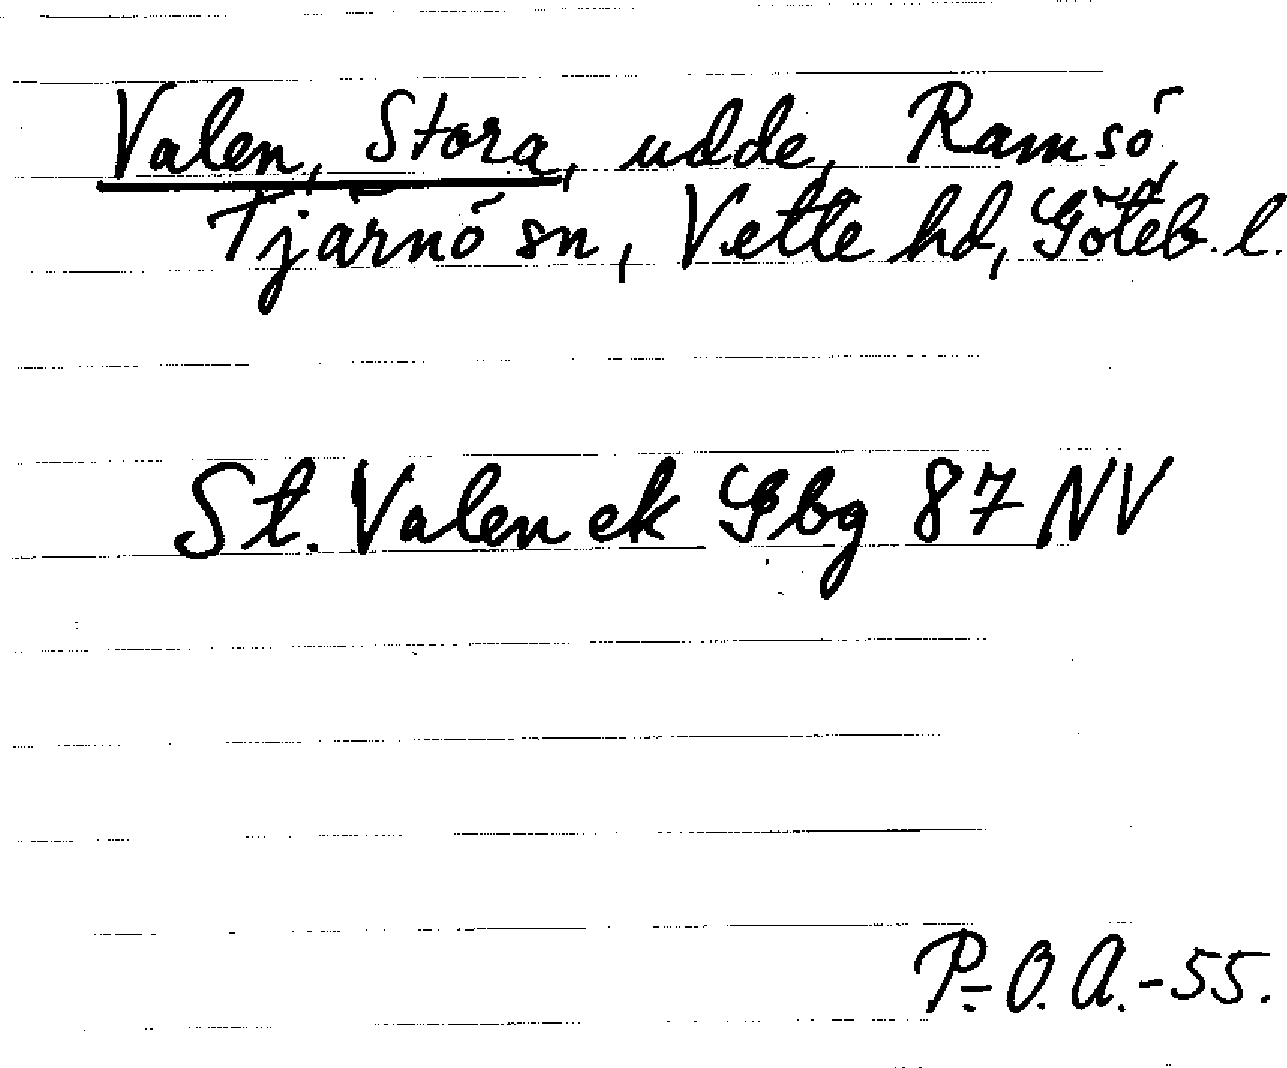 Valen, Stora, udde, Ramsö,
Tjärnö sn, Vette hd, Göteb. l.
St. Valen ek Gbg 87 NV
P.-O. A.-55.